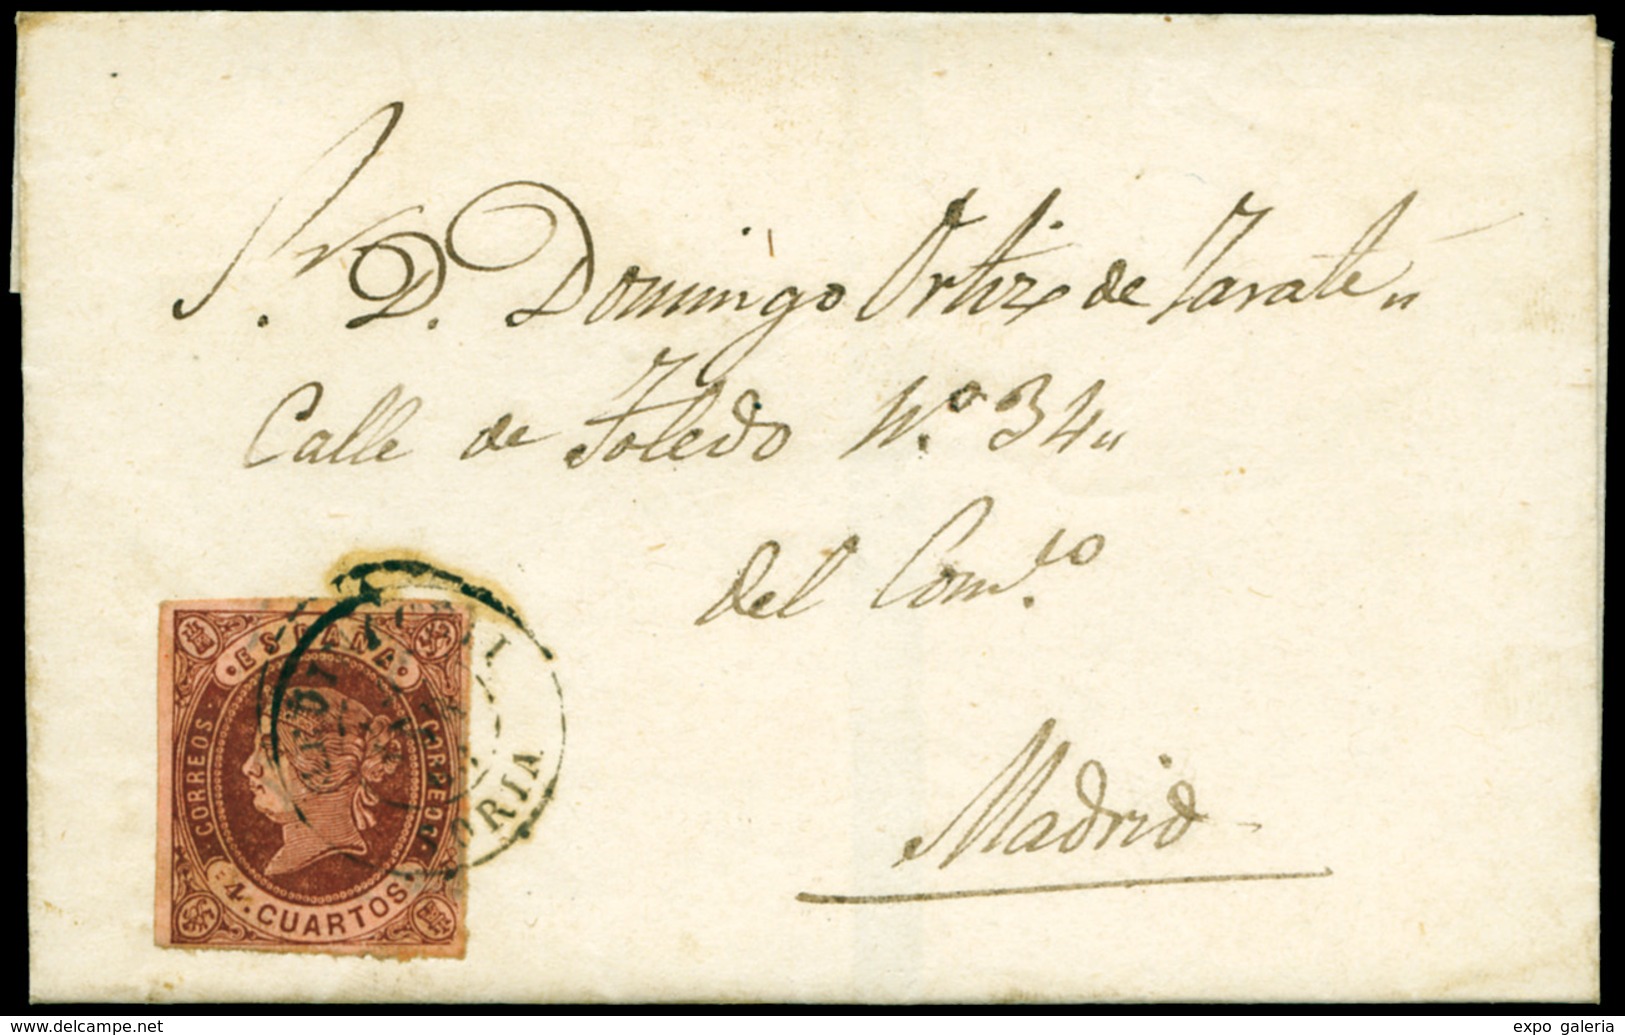 Sr. D. Domingo Ortiz de Zarate „
Calle de Toledo N.º 34 „
del Com.io
Madrid
ESPAÑA
CORREOS
CORREOS
4. CUARTOS
SORIA
www.delcampe.net
expo galeria